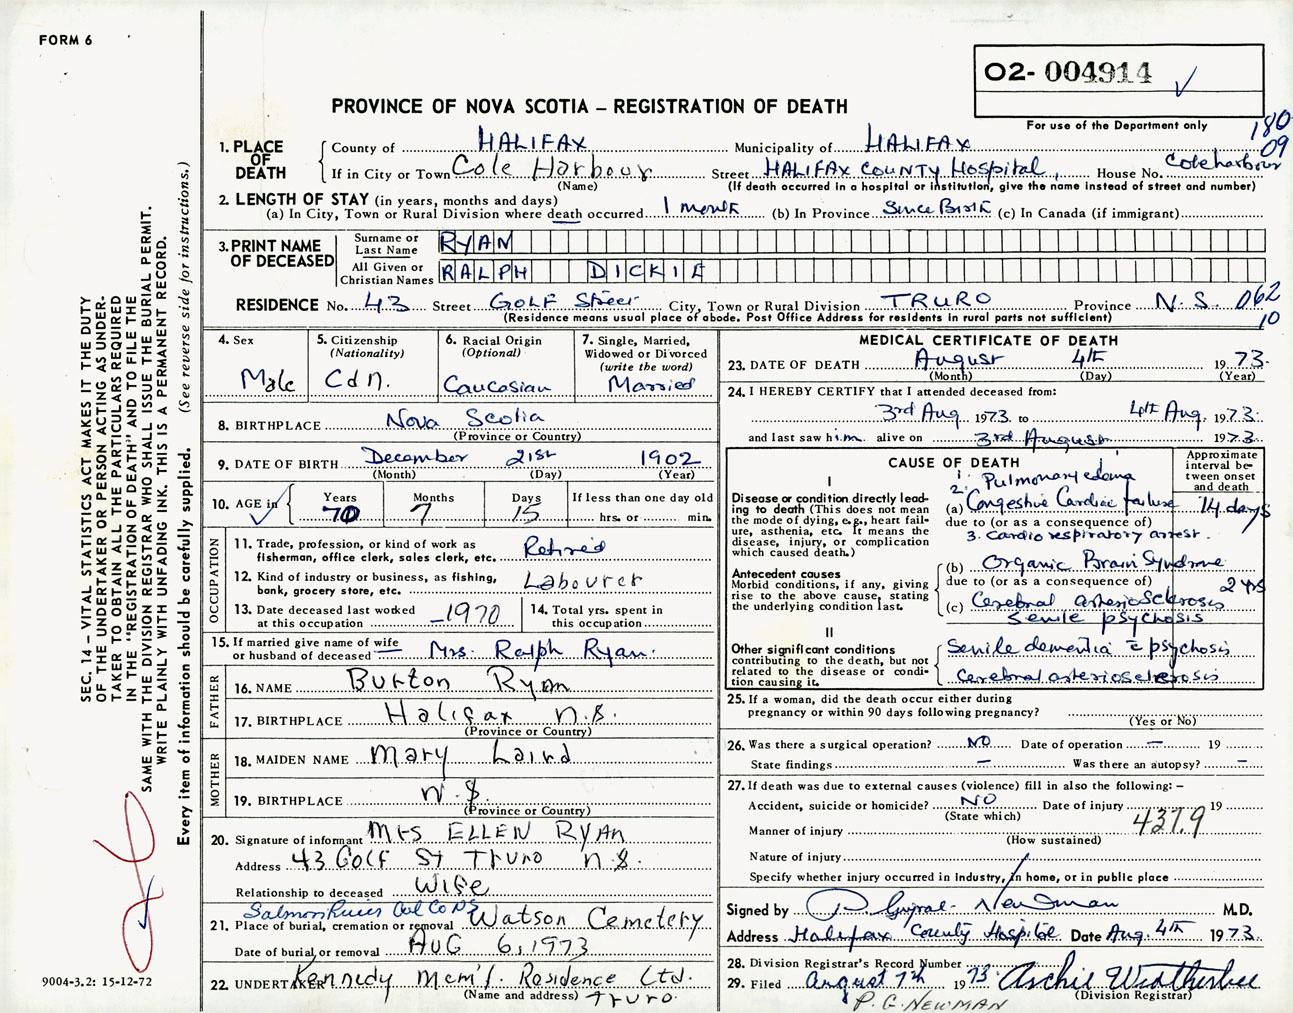 FORM 6
O2- 004914 ✓
PROVINCE OF NOVA SCOTIA – REGISTRATION OF DEATH
For use of the Department only
180
09
1. PLACE OF DEATH
County of HALIFAX Municipality of HALIFAX
If in City or Town Cole Harbour Street HALIFAX COUNTY Hospital, House No. Cole harbour
(Name) (If death occurred in a hospital or institution, give the name instead of street and number)
2. LENGTH OF STAY (in years, months and days)
(a) In City, Town or Rural Division where death occurred 1 month (b) In Province Since Birth (c) In Canada (if immigrant)
3. PRINT NAME OF DECEASED
Surname or Last Name RYAN
All Given or Christian Names RALPH DICKIE
RESIDENCE No. 43 Street GOLF Street City, Town or Rural Division TRURO Province N.S. 062
10
(Residence means usual place of abode. Post Office Address for residents in rural parts not sufficient)
4. Sex Male
5. Citizenship (Nationality) Cdn.
6. Racial Origin (Optional) Caucasian
7. Single, Married, Widowed or Divorced (write the word) Married
8. BIRTHPLACE Nova Scotia
(Province or Country)
9. DATE OF BIRTH December 21st 1902
(Month) (Day) (Year)
10. AGE in ✓ Years 70 Months 7 Days 15 If less than one day old hrs. or min.
OCCUPATION
11. Trade, profession, or kind of work as fisherman, office clerk, sales clerk, etc. Retired
12. Kind of industry or business, as fishing, bank, grocery store, etc. Labourer
13. Date deceased last worked at this occupation – 1970
14. Total yrs. spent in this occupation
15. If married give name of wife or husband of deceased – Mrs. Ralph Ryan.
FATHER
16. NAME Burton Ryan
17. BIRTHPLACE Halifax N.S.
(Province or Country)
MOTHER
18. MAIDEN NAME Mary Laird
19. BIRTHPLACE N.S.
(Province or Country)
20. Signature of informant Mrs ELLEN RYAN
Address 43 Golf St Truro N.S.
Relationship to deceased Wife
21. Place of burial, cremation or removal Watson Cemetery
Date of burial or removal AUG 6, 1973
22. UNDERTAKER Kennedy Mem'l. Residence Ltd.
(Name and address) Truro.
MEDICAL CERTIFICATE OF DEATH
23. DATE OF DEATH August 4th 1973.
(Month) (Day) (Year)
24. I HEREBY CERTIFY that I attended deceased from:
3rd Aug. 1973 to 4th Aug. 1973.
and last saw him alive on 3rd August 1973
CAUSE OF DEATH
Approximate interval between onset and death
I
Disease or condition directly leading to death (This does not mean the mode of dying, e.g., heart failure, asthenia, etc. It means the disease, injury, or complication which caused death.)
1. Pulmonary edema
2. (a) Congestive Cardiac failure 14 days
due to (or as a consequence of)
3. Cardio respiratory arrest.
Antecedent causes
Morbid conditions, if any, giving rise to the above cause, stating the underlying condition last.
(b) Organic Brain Syndrome
due to (or as a consequence of) 2 yrs
(c) Cerebral arteriosclerosis
Senile psychosis
II
Other significant conditions
contributing to the death, but not related to the disease or condition causing it.
Senile dementia c̄ psychosis
Cerebral arteriosclerosis
25. If a woman, did the death occur either during pregnancy or within 90 days following pregnancy?
(Yes or No)
26. Was there a surgical operation? NO Date of operation – 19
State findings – Was there an autopsy? –
27. If death was due to external causes (violence) fill in also the following: –
Accident, suicide or homicide? NO Date of injury 19
(State which) 437.9
Manner of injury
(How sustained)
Nature of injury
Specify whether injury occurred in industry, in home, or in public place
Signed by Newman M.D.
Address Halifax County Hospital Date Aug. 4th 1973.
28. Division Registrar's Record Number
29. Filed August 7th 1973 Archie Weatherbee
(Division Registrar)
P. G. NEWMAN
SEC. 14 – VITAL STATISTICS ACT MAKES IT THE DUTY
OF THE UNDERTAKER OR PERSON ACTING AS UNDER-
TAKER TO OBTAIN ALL THE PARTICULARS REQUIRED
IN THE "REGISTRATION OF DEATH" AND TO FILE THE
SAME WITH THE DIVISION REGISTRAR WHO SHALL ISSUE THE BURIAL PERMIT.
WRITE PLAINLY WITH UNFADING INK. THIS IS A PERMANENT RECORD.
Every item of information should be carefully supplied. (See reverse side for instructions.)
9004-3.2: 15-12-72